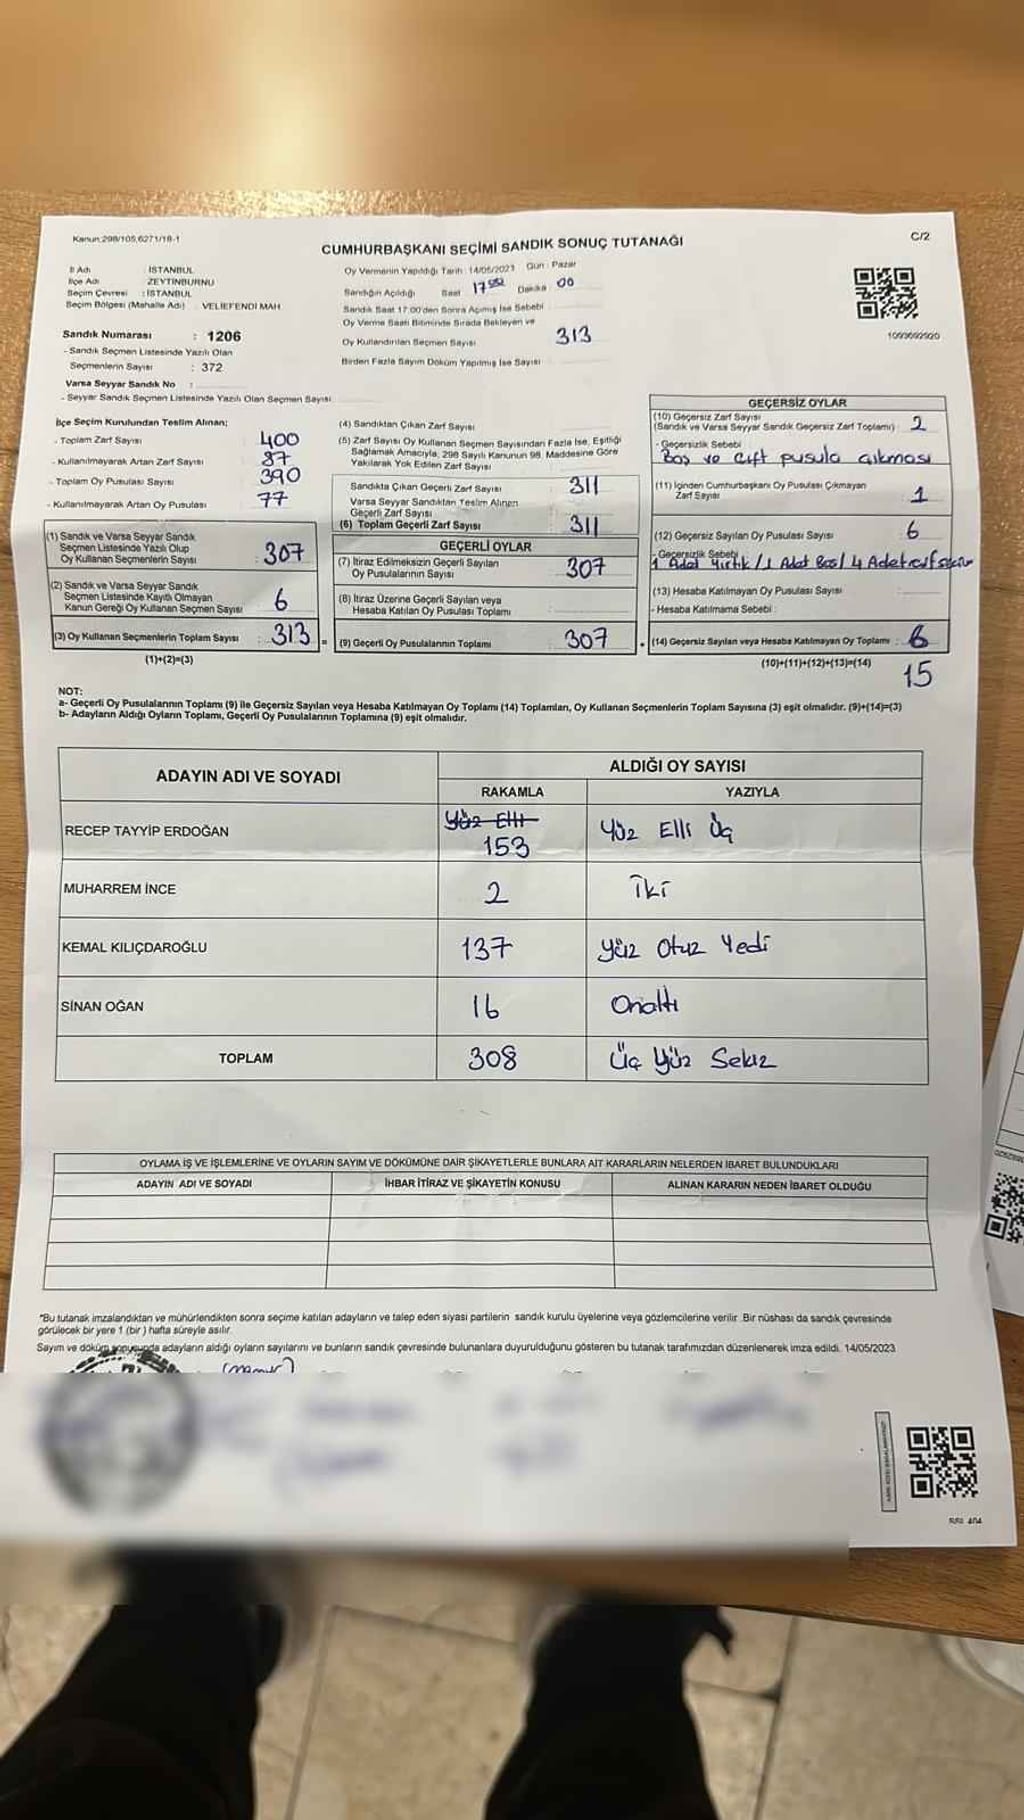 Kanun:298/105,6271/18-1
C/2
CUMHURBAŞKANI SEÇİMİ SANDIK SONUÇ TUTANAĞI
İl Adı : İSTANBUL
İlçe Adı : ZEYTİNBURNU
Seçim Çevresi : İSTANBUL
Seçim Bölgesi (Mahalle Adı) : VELİEFENDİ MAH
Sandık Numarası : 1206
- Sandık Seçmen Listesinde Yazılı Olan
Seçmenlerin Sayısı : 372
Varsa Seyyar Sandık No :
- Seyyar Sandık Seçmen Listesinde Yazılı Olan Seçmen Sayısı
Oy Vermenin Yapıldığı Tarih : 14/05/2023 Gün : Pazar
Sandığın Açıldığı Saat 17 Dakika 00
Sandık Saat 17:00'den Sonra Açımış İse Sebebi
Oy Verme Saati Bitiminde Sırada Bekleyen ve
Oy Kullandırılan Seçmen Sayısı 313
Birden Fazla Sayım Döküm Yapılmış İse Sayısı
1093692920
İlçe Seçim Kurulundan Teslim Alınan;
- Toplam Zarf Sayısı 400
- Kullanılmayarak Artan Zarf Sayısı 87
- Toplam Oy Pusulası Sayısı 390
- Kullanılmayarak Artan Oy Pusulası 77
(1) Sandık ve Varsa Seyyar Sandık
Seçmen Listesinde Yazılı Olup
Oy Kullanan Seçmenlerin Sayısı : 307
(2) Sandık ve Varsa Seyyar Sandık
Seçmen Listesinde Kayıtlı Olmayan
Kanun Gereği Oy Kullanan Seçmen Sayısı 6
(3) Oy Kullanan Seçmenlerin Toplam Sayısı : 313 =
(1)+(2)=(3)
(4) Sandıktan Çıkan Zarf Sayısı
(5) Zarf Sayısı Oy Kullanan Seçmen Sayısından Fazla İse, Eşitliği
Sağlamak Amacıyla, 298 Sayılı Kanunun 98. Maddesine Göre
Yakılarak Yok Edilen Zarf Sayısı
Sandıkta Çıkan Geçerli Zarf Sayısı 311
Varsa Seyyar Sandıktan Teslim Alınan
Geçerli Zarf Sayısı
(6) Toplam Geçerli Zarf Sayısı 311
GEÇERLİ OYLAR
(7) İtiraz Edilmeksizin Geçerli Sayılan
Oy Pusulalarının Sayısı 307
(8) İtiraz Üzerine Geçerli Sayılan veya
Hesaba Katılan Oy Pusulası Toplamı
(9) Geçerli Oy Pusulalarının Toplamı 307
GEÇERSİZ OYLAR
(10) Geçersiz Zarf Sayısı
(Sandık ve Varsa Seyyar Sandık Geçersiz Zarf Toplamı) 2
- Geçersizlik Sebebi
Boş ve çift pusula çıkması
(11) İçinden Cumhurbaşkanı Oy Pusulası Çıkmayan
Zarf Sayısı 1
(12) Geçersiz Sayılan Oy Pusulası Sayısı 6
- Geçersizlik Sebebi
1 Adet Yırtık / 1 Adet Boş / 4 Adet
(13) Hesaba Katılmayan Oy Pusulası Sayısı
- Hesaba Katılmama Sebebi
(14) Geçersiz Sayılan veya Hesaba Katılmayan Oy Toplamı : 6
(10)+(11)+(12)+(13)=(14)
15
NOT:
a- Geçerli Oy Pusulalarının Toplamı (9) ile Geçersiz Sayılan veya Hesaba Katılmayan Oy Toplamı (14) Toplamları, Oy Kullanan Seçmenlerin Toplam Sayısına (3) eşit olmalıdır. (9)+(14)=(3)
b- Adayların Aldığı Oyların Toplamı, Geçerli Oy Pusulalarının Toplamına (9) eşit olmalıdır.
ADAYIN ADI VE SOYADI
ALDIĞI OY SAYISI
RAKAMLA YAZIYLA
RECEP TAYYİP ERDOĞAN Yüz Elli 153 Yüz Elli Üç
MUHARREM İNCE 2 İki
KEMAL KILIÇDAROĞLU 137 Yüz Otuz Yedi
SİNAN OĞAN 16 Onaltı
TOPLAM 308 Üç Yüz Sekiz
OYLAMA İŞ VE İŞLEMLERİNE VE OYLARIN SAYIM VE DÖKÜMÜNE DAİR ŞİKAYETLERLE BUNLARA AİT KARARLARIN NELERDEN İBARET BULUNDUKLARI
ADAYIN ADI VE SOYADI İHBAR İTİRAZ VE ŞİKAYETİN KONUSU ALINAN KARARIN NEDEN İBARET OLDUĞU
*Bu tutanak imzalandıktan ve mühürlendikten sonra seçime katılan adayların ve talep eden siyasi partilerin sandık kurulu üyelerine veya gözlemcilerine verilir. Bir nüshası da sandık çevresinde
görülecek bir yere 1 (bir) hafta süreyle asılır.
Sayım ve döküm sonucunda adayların aldığı oyların sayılarını ve bunların sandık çevresinde bulunanlara duyurulduğunu gösteren bu tutanak tarafımızdan düzenlenerek imza edildi. 14/05/2023